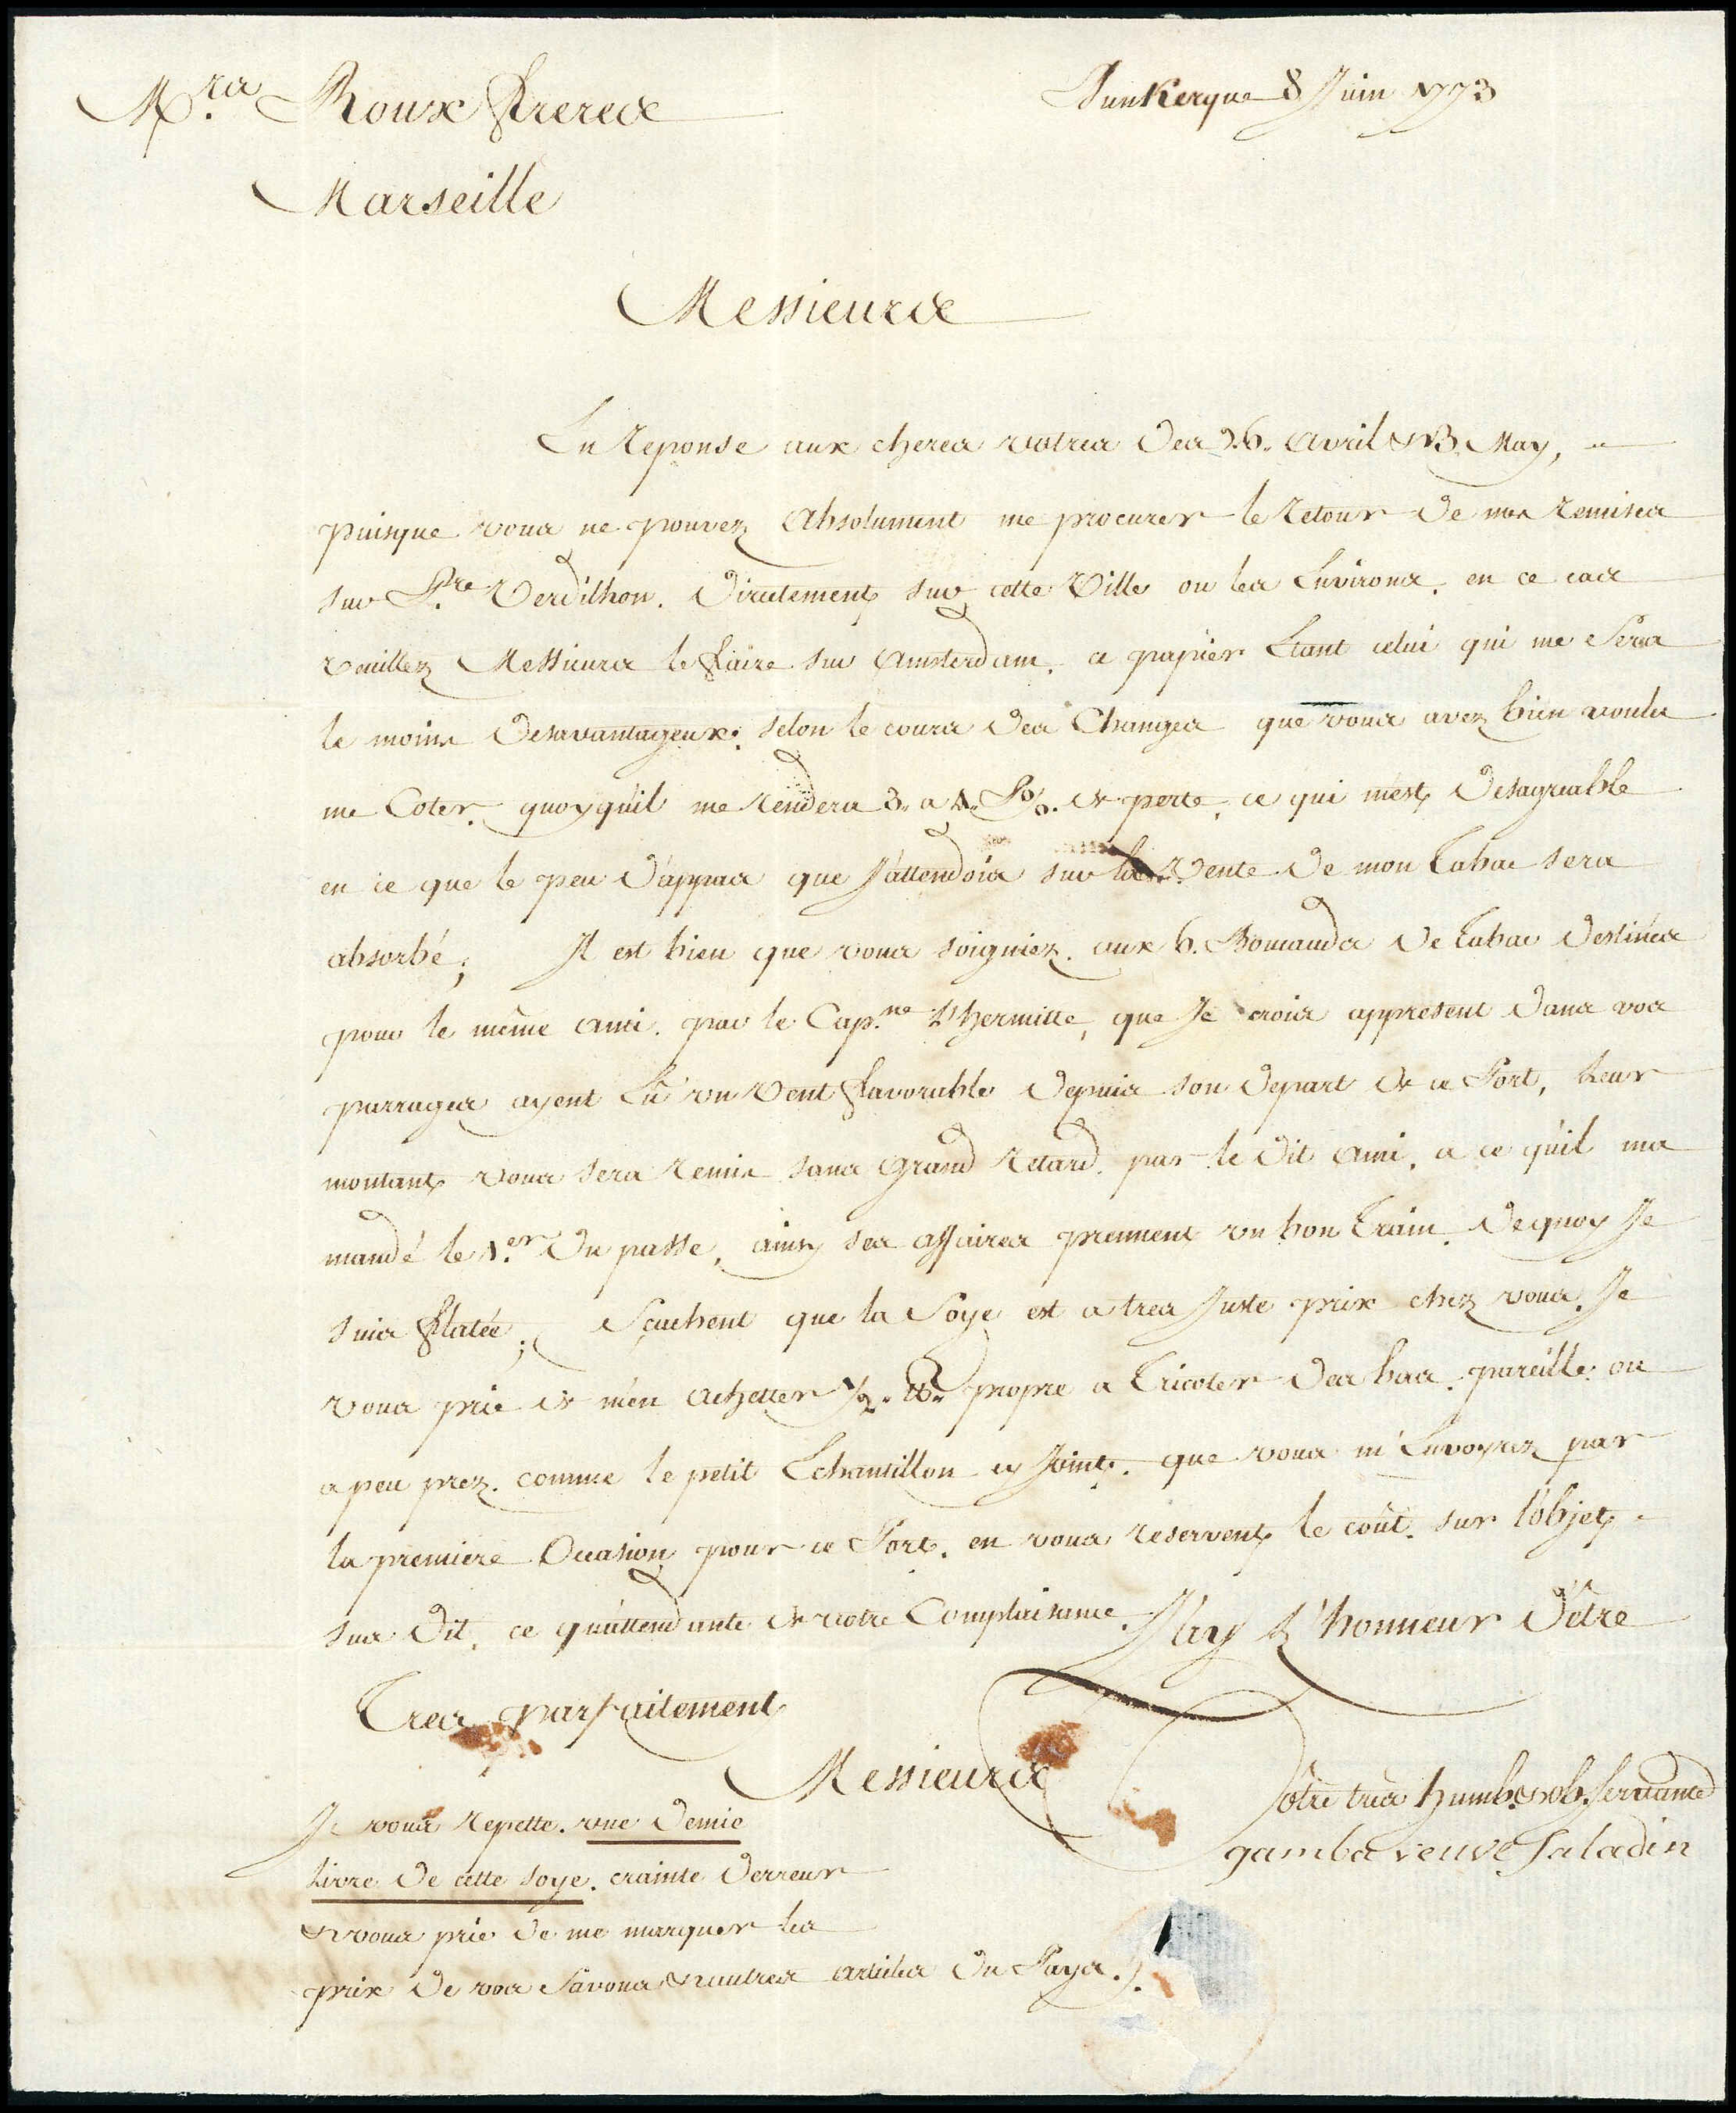 M.rs Roux Freres
Dunkerque 8 Juin 1773
Marseille
Messieurs
En Reponse aux cheres vostres des 26. Avril & 13. May,
puisque vous ne pouvez Absolument me procurer le Retour de mes Remises
sur P.re Verdilhon. Directement sur cette Ville ou les Environs. en ce cas
veuillez Messieurs le faire sur Amsterdam. ce papier Etant celui qui me Sera
le moins Desavantageux. selon le cours des Changes que vous avez bien voulu
me Coter. quoyqu'il me Rendera 3. a 4. P%. de perte, ce qui m'est Desagreable
en ce que le peu D'appas que J'attendois sur la Vente De mon Tabac sera
absorbé; Il est bien que vous soigniez. aux 6. Boucauds De Tabac Destinés
pour le même Ami. par le Cap.ne L'hermitte, que Je crois appresent Dans vos
parrages ayent Eû un Vent favorable Depuis son Depart de ce Port, Leur
montant vous sera Remis sans Grand Retard. par le Dit Ami, a ce qu'il ma
mandé le 1.er Du passe, ainsy ses affaires prennent un bon Train. Dequoy Je
suis flatée; Scachent que la Soye est a tres Juste prix chez vous. Je
vous prie de m'en Achetter 1/2. lb. propre a Tricoter Des bas. pareille ou
a peu prez. comme le petit Echantillon cy Joint. que vous m'Envoyrez par
la premiere Occasion pour ce Port. en vous Reservent le coût. sur l'objet
sus Dit, ce qu'attendante de votre Complaisance. J'ay L'honneur D'être
Tres parfaitement
Messieurs
Votre tres humb. & ob. Servante
gamba veuve Saladin
Je vous Repette. une Demie
Livre De cette soye. crainte Derreur
& vous prie De me marquer les
prix De vos Savons & autres articles Du Pays.